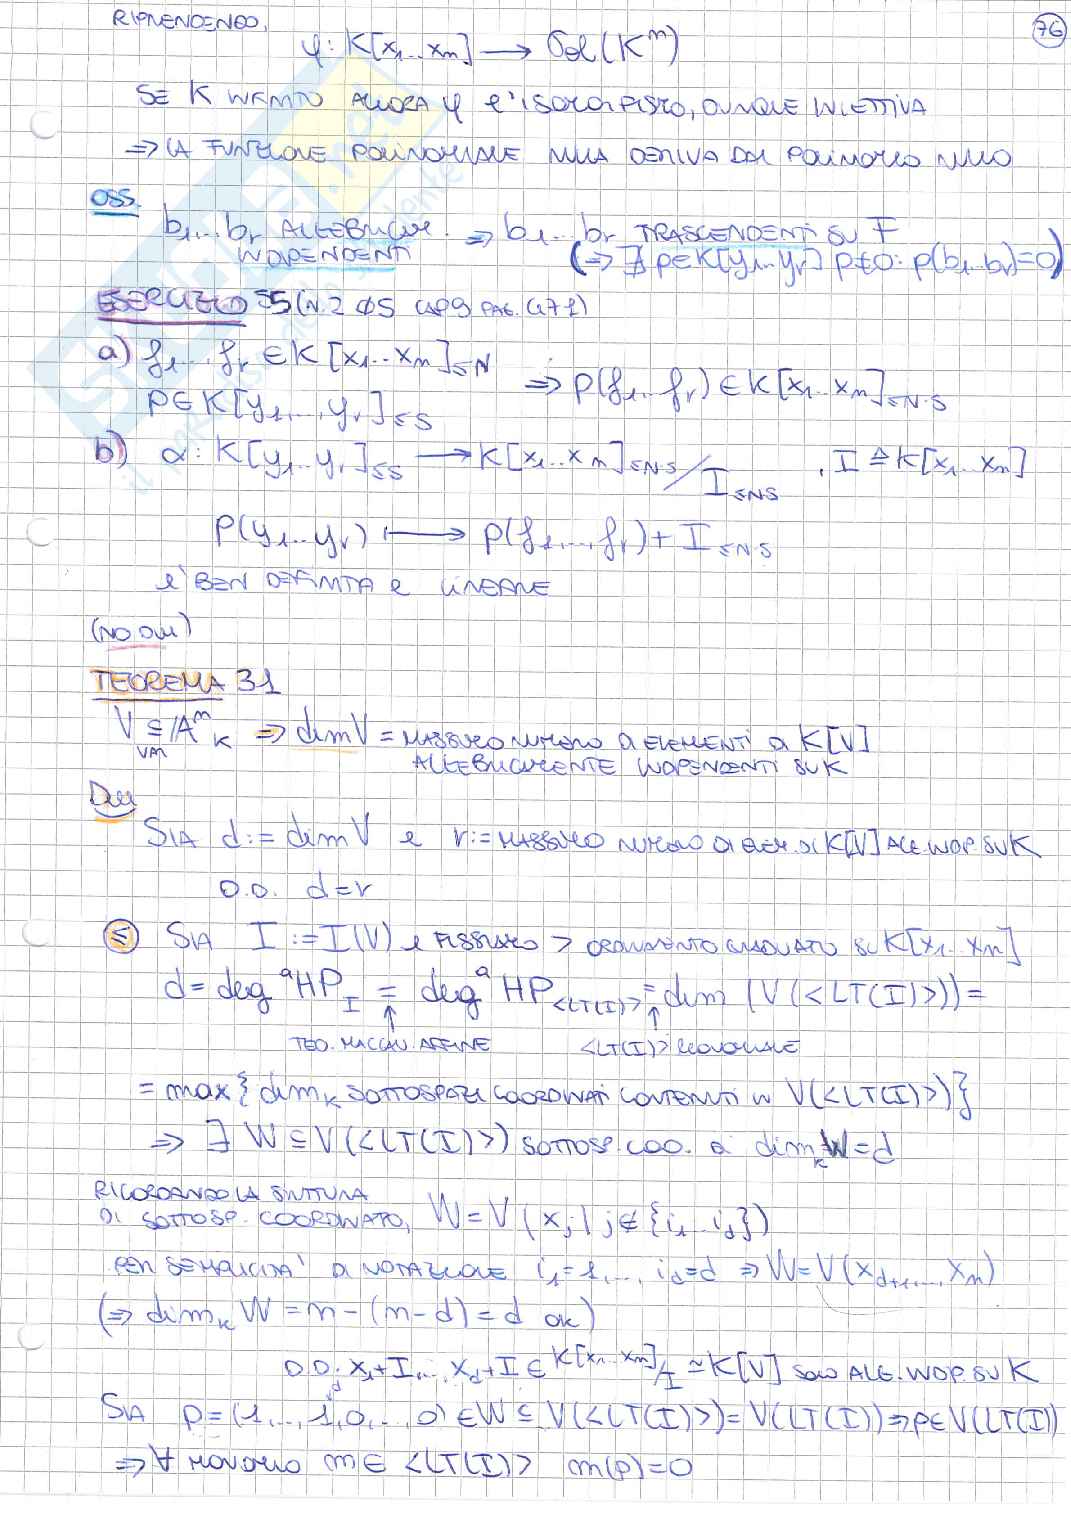 RIPRENDENDO,
76
φ: K[x₁...xₙ] → Pol(Kⁿ)
SE K INFINITO ALLORA φ è ISOMORFISMO, DUNQUE INIETTIVA
⇒ LA FUNZIONE POLINOMIALE NULLA DERIVA DAL POLINOMIO NULLO
OSS.
b₁...bᵣ ALGEBRICAM. INDIPENDENTI ⇒ b₁...bᵣ TRASCENDENTI SU F
(⇒ ∄ p∈K[y₁...yᵣ] p≠0: p(b₁...bᵣ)=0)
ESERCIZIO 55 (N.2 §5 CAP9 PAG.471)
a) f₁...fᵣ ∈ K[x₁...xₙ]≤N
p∈K[y₁,...,yᵣ]≤S ⇒ p(f₁...fᵣ) ∈ K[x₁...xₙ]≤N·S
b) α: K[y₁...yᵣ]≤S → K[x₁...xₙ]≤N·S / I≤N·S , I ⊴ K[x₁...xₙ]
p(y₁...yᵣ) ↦ p(f₁,...,fᵣ) + I≤N·S
è BEN DEFINITA e LINEARE
(NO DIM)
TEOREMA 31
V ⊆ Aⁿ_K ⇒ dim V = MASSIMO NUMERO DI ELEMENTI DI K[V]
VAR
ALGEBRICAMENTE INDIPENDENTI SU K
Dim
SIA d := dim V e r := MASSIMO NUMERO DI ELEM. DI K[V] ALG. INDIP. SU K
D.D. d=r
≤ SIA I := I(V) e FISSIAMO > ORDINAMENTO GRADUATO SU K[x₁...xₙ]
d = deg ᵃHP_I = deg ᵃHP_<LT(I)> = dim (V(<LT(I)>)) =
TEO. MACAU. AFFINE <LT(I)> MONOMIALE
= max{dim_K SOTTOSPAZI COORDINATI CONTENUTI IN V(<LT(I)>)}
⇒ ∃ W ⊆ V(<LT(I)>) SOTTOSP. COO. DI dim_K W = d
RICORDANDO LA STRUTTURA
DI SOTTOSP. COORDINATO, W = V(xⱼ | j ∉ {i₁...i_d})
PER SEMPLICITA' DI NOTAZIONE i₁=1,..., i_d=d ⇒ W = V(x_{d+1},...,xₙ)
(⇒ dim_K W = n-(n-d) = d ok)
D.D. x₁+I,..., x_d+I ∈ K[x₁...xₙ]/I ≃ K[V] SONO ALG. INDIP. SU K
SIA p = (1,...,1,0,...,0) ∈ W ⊆ V(<LT(I)>) = V(LT(I)) ⇒ p∈V(LT(I))
d
⇒ ∀ MONOMIO m ∈ <LT(I)> m(p)=0